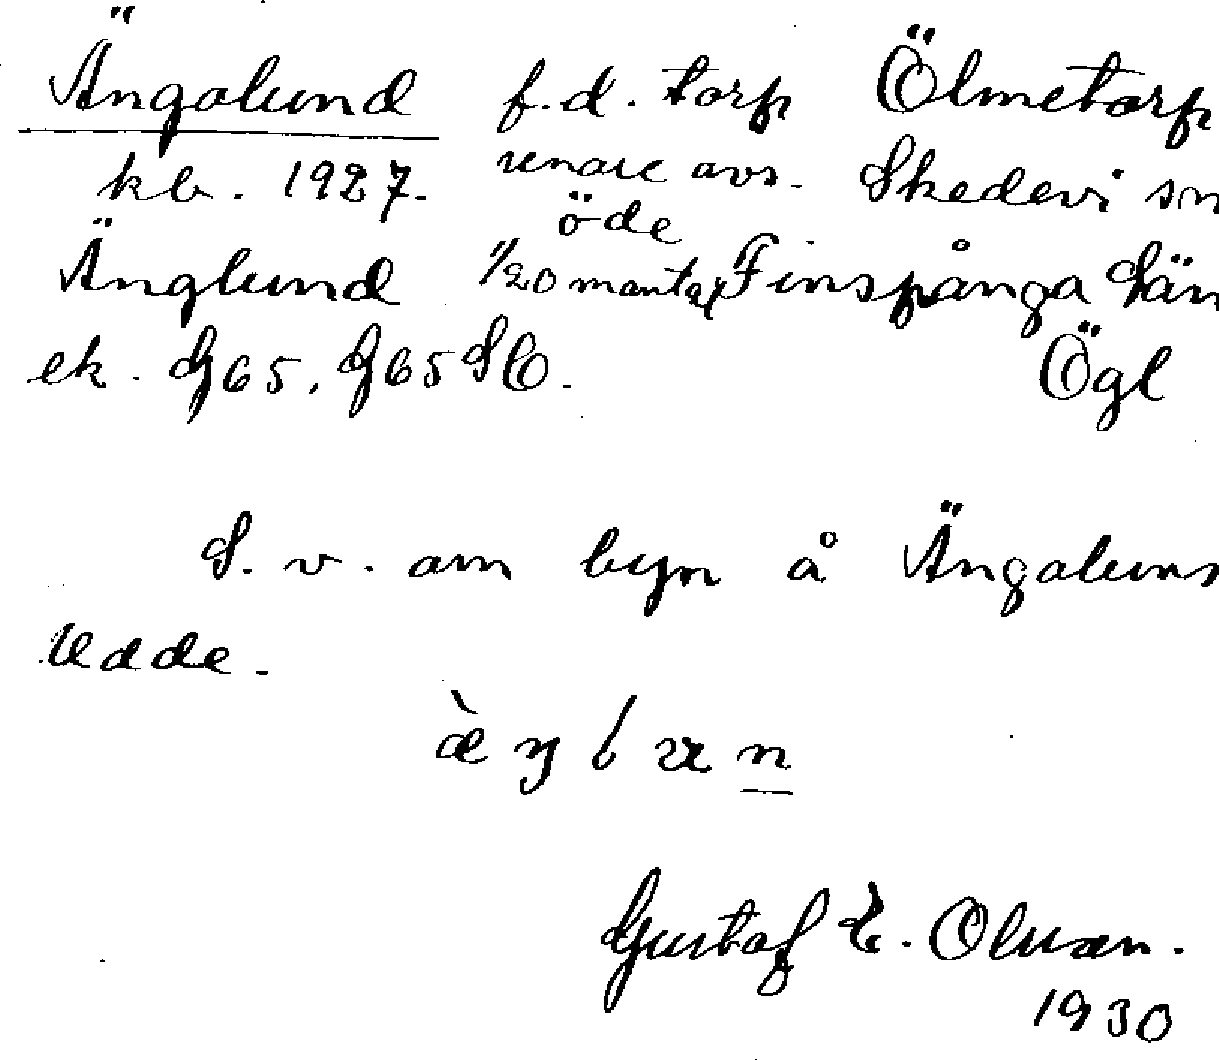 Ängalund f.d. torp Ölmetorp
kb. 1927. senare avs. Skedevi sn
öde
Änglund 1/20 mantal Finspånga län
ek. G65, G65 SO. Ögl
S. v. om byn å Ängaluns
Udde.
Gustaf E. Olsson.
1930